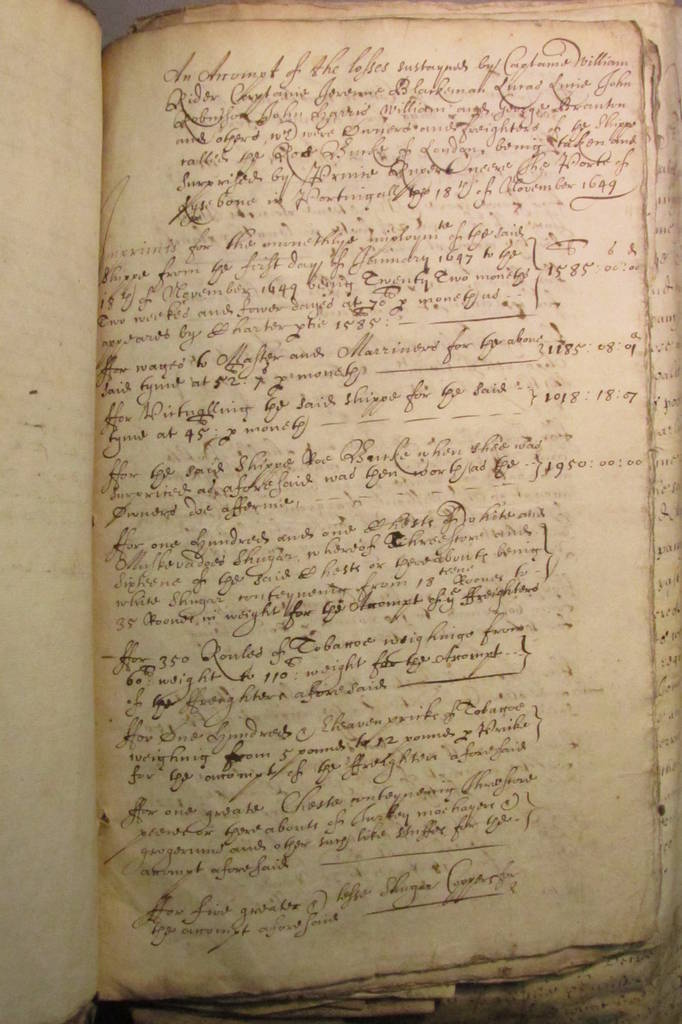 An Accompt of the losses sustayned by Captaine William
Rider Captaine Jeremie Blackman Lucas Lucie John
Robinson John William and George Stranton
and others, wch were Owners and freighters of the Shippe
called the Roe Bucke of London being taken and
surprised by Prince Rupert neere the Port of
Lysbone in Portingall the 18th of November 1649
Imprimis for the monethlye imploymte of the said
Shippe from the first day of January 1647 to the
18th of November 1649 being Twenty Two moneths
Two weekes and fower dayes at 70li p moneth as
appeares by Charter ptie 1585:
1585:00:00
ffor wages to Master and Marriners for the above
said tyme at 52: 7s p moneth
1185:08:01
ffor Victualling the said shippe for the said
tyme at 45: p moneth
1018:18:07
ffor the said Shippe Roe Bucke when shee was
surprized as aforesaid was then worth as the
Owners doe afferme
1950:00:00
ffor one hundred and one Chests of White and
Muskovadoes Shugar, whereof Threescore and
Sixteene of the said Chests or thereabouts being
white Shugar conteyneing from 18teene Roones to
35 Roones in weight for the Accompt of the ffreighters
ffor 350 Roules of Tobaccoe weighinge from
60: weight to 110: weight for the Accompt
of the ffreighters aforesaid
ffor One hundred & Eleaven pricks of Tobaccoe
weighing from 5 pounds to 12 pounds p Pricke
for the accompt of the ffreighters aforesaid
ffor one greate Cheste conteyneing threescore
peeces or thereabouts of Turkey mochayers &
grogerums and other such like stuffes for the
accompt aforesaid
ffor five greater & lesse Shugar Coppers for
the accompt aforesaid